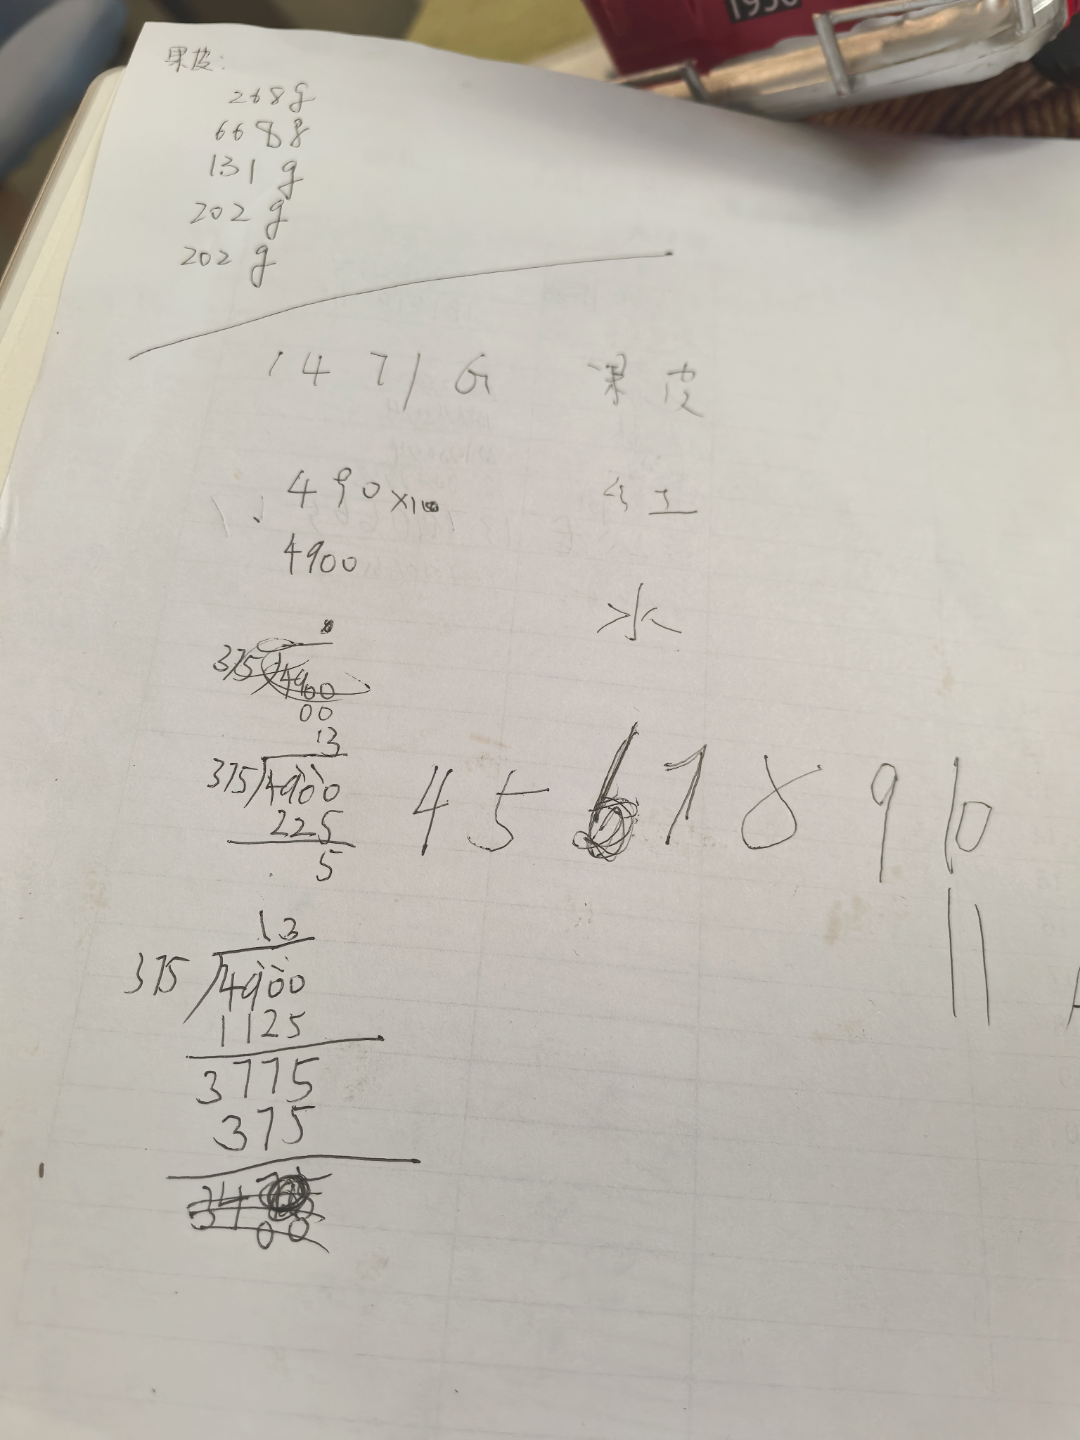 1956
果皮:
268g
668g
131g
202g
202g
1471G 果皮
490×100 红
4900
水
375 4900
00
13
375 4900
225
5
4 5 6 7 8 9 10
11
13
375 4900
1125
3775
375